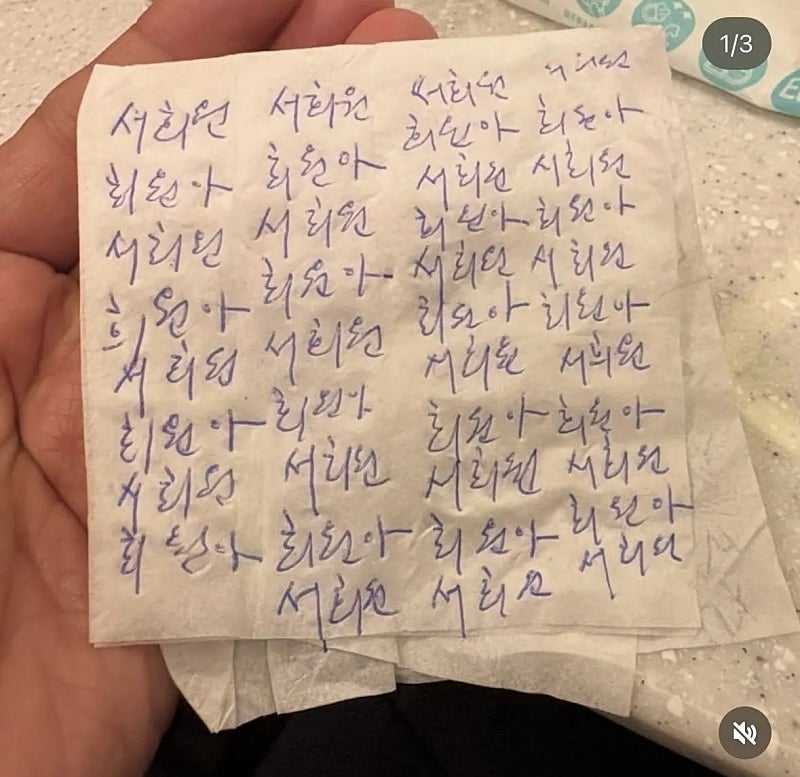 1/3
서희원
희원아
서희원
희원아
서희원
희원아
서희원
희원아
서희원
희원아
서희원
희원아
서희원
희원아
서희원
희원아
서희원
서희원
희원아
서희원
희원아
서희원
희원아
서희원
희원아
서희원
희원아
서희원
서희원
희원아
서희원
희원아
서희원
희원아
서희원
희원아
서희원
희원아
서희원